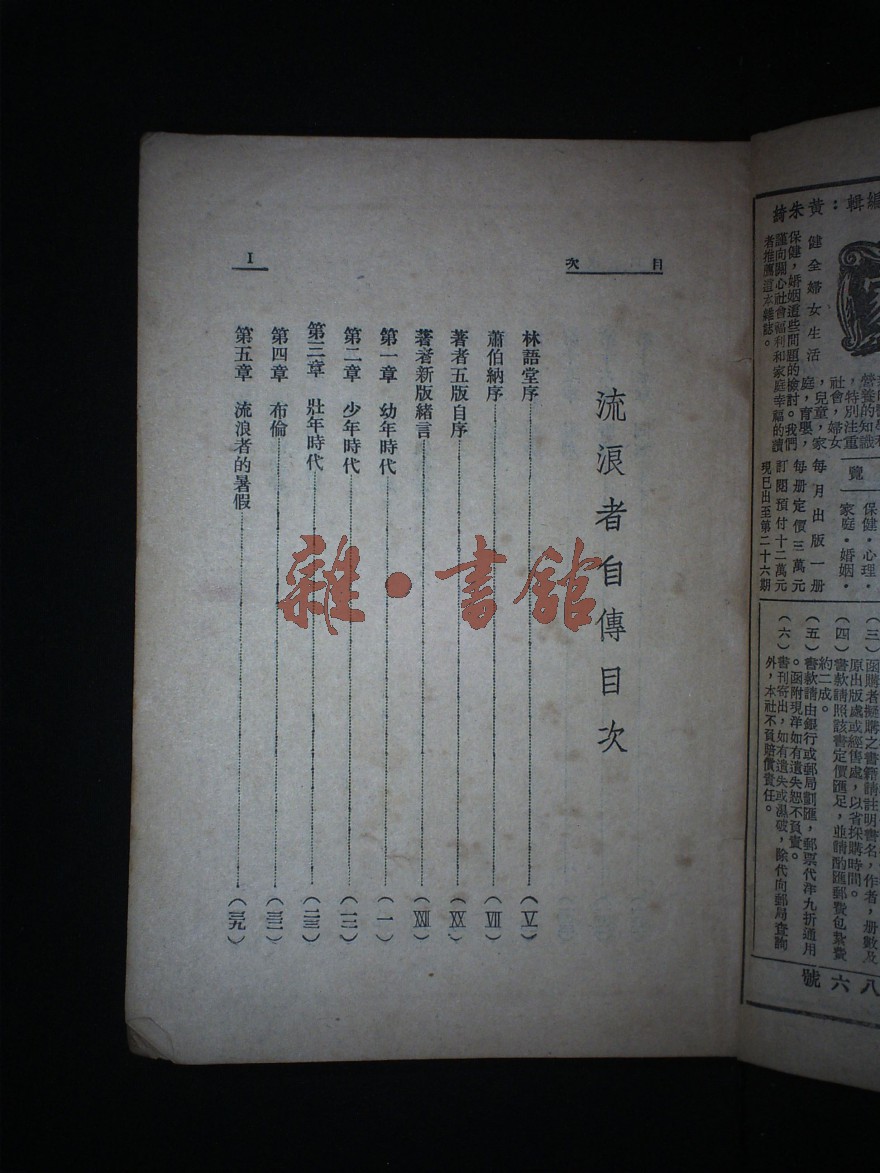 目次
流浪者自傳目次
林語堂序(Ⅴ)
蕭伯納序(Ⅶ)
著者五版自序(ⅩⅩ)
著者新版緒言
第一章 幼年時代(一)
第二章 少年時代(一二)
第三章 壯年時代(二三)
第四章 布倫(三二)
第五章 流浪者的暑假(三九)
I
雜·書館
編輯：黃朱綺
營養的知識
，特別注重
社會，婦女
，兒童，家
庭，育嬰，
健全婦女生活
保健，婚姻這些問題的檢討。我們
謹向關心社會福利和家庭幸福的讀
者推薦這本雜誌。
覽
保健·心理·
家庭·婚姻·
每月出版一册
每册定價三萬元
訂閱預付十二萬元
現已出至第二十六期
(三)函購者擬購之書籍請註明書名，作者，册數及
原出版處或經售處，以省採購時間。
(四)書款請照該書定價匯足，並請酌匯郵費包紮費
約二成。
(五)書款請由銀行或郵局劃匯，郵票代洋九折通用
。函附現洋如有遺失恕不負責。
(六)書刊寄出，如有遺失或濕破，除代向郵局查詢
外，本社不負賠償責任。
八六號